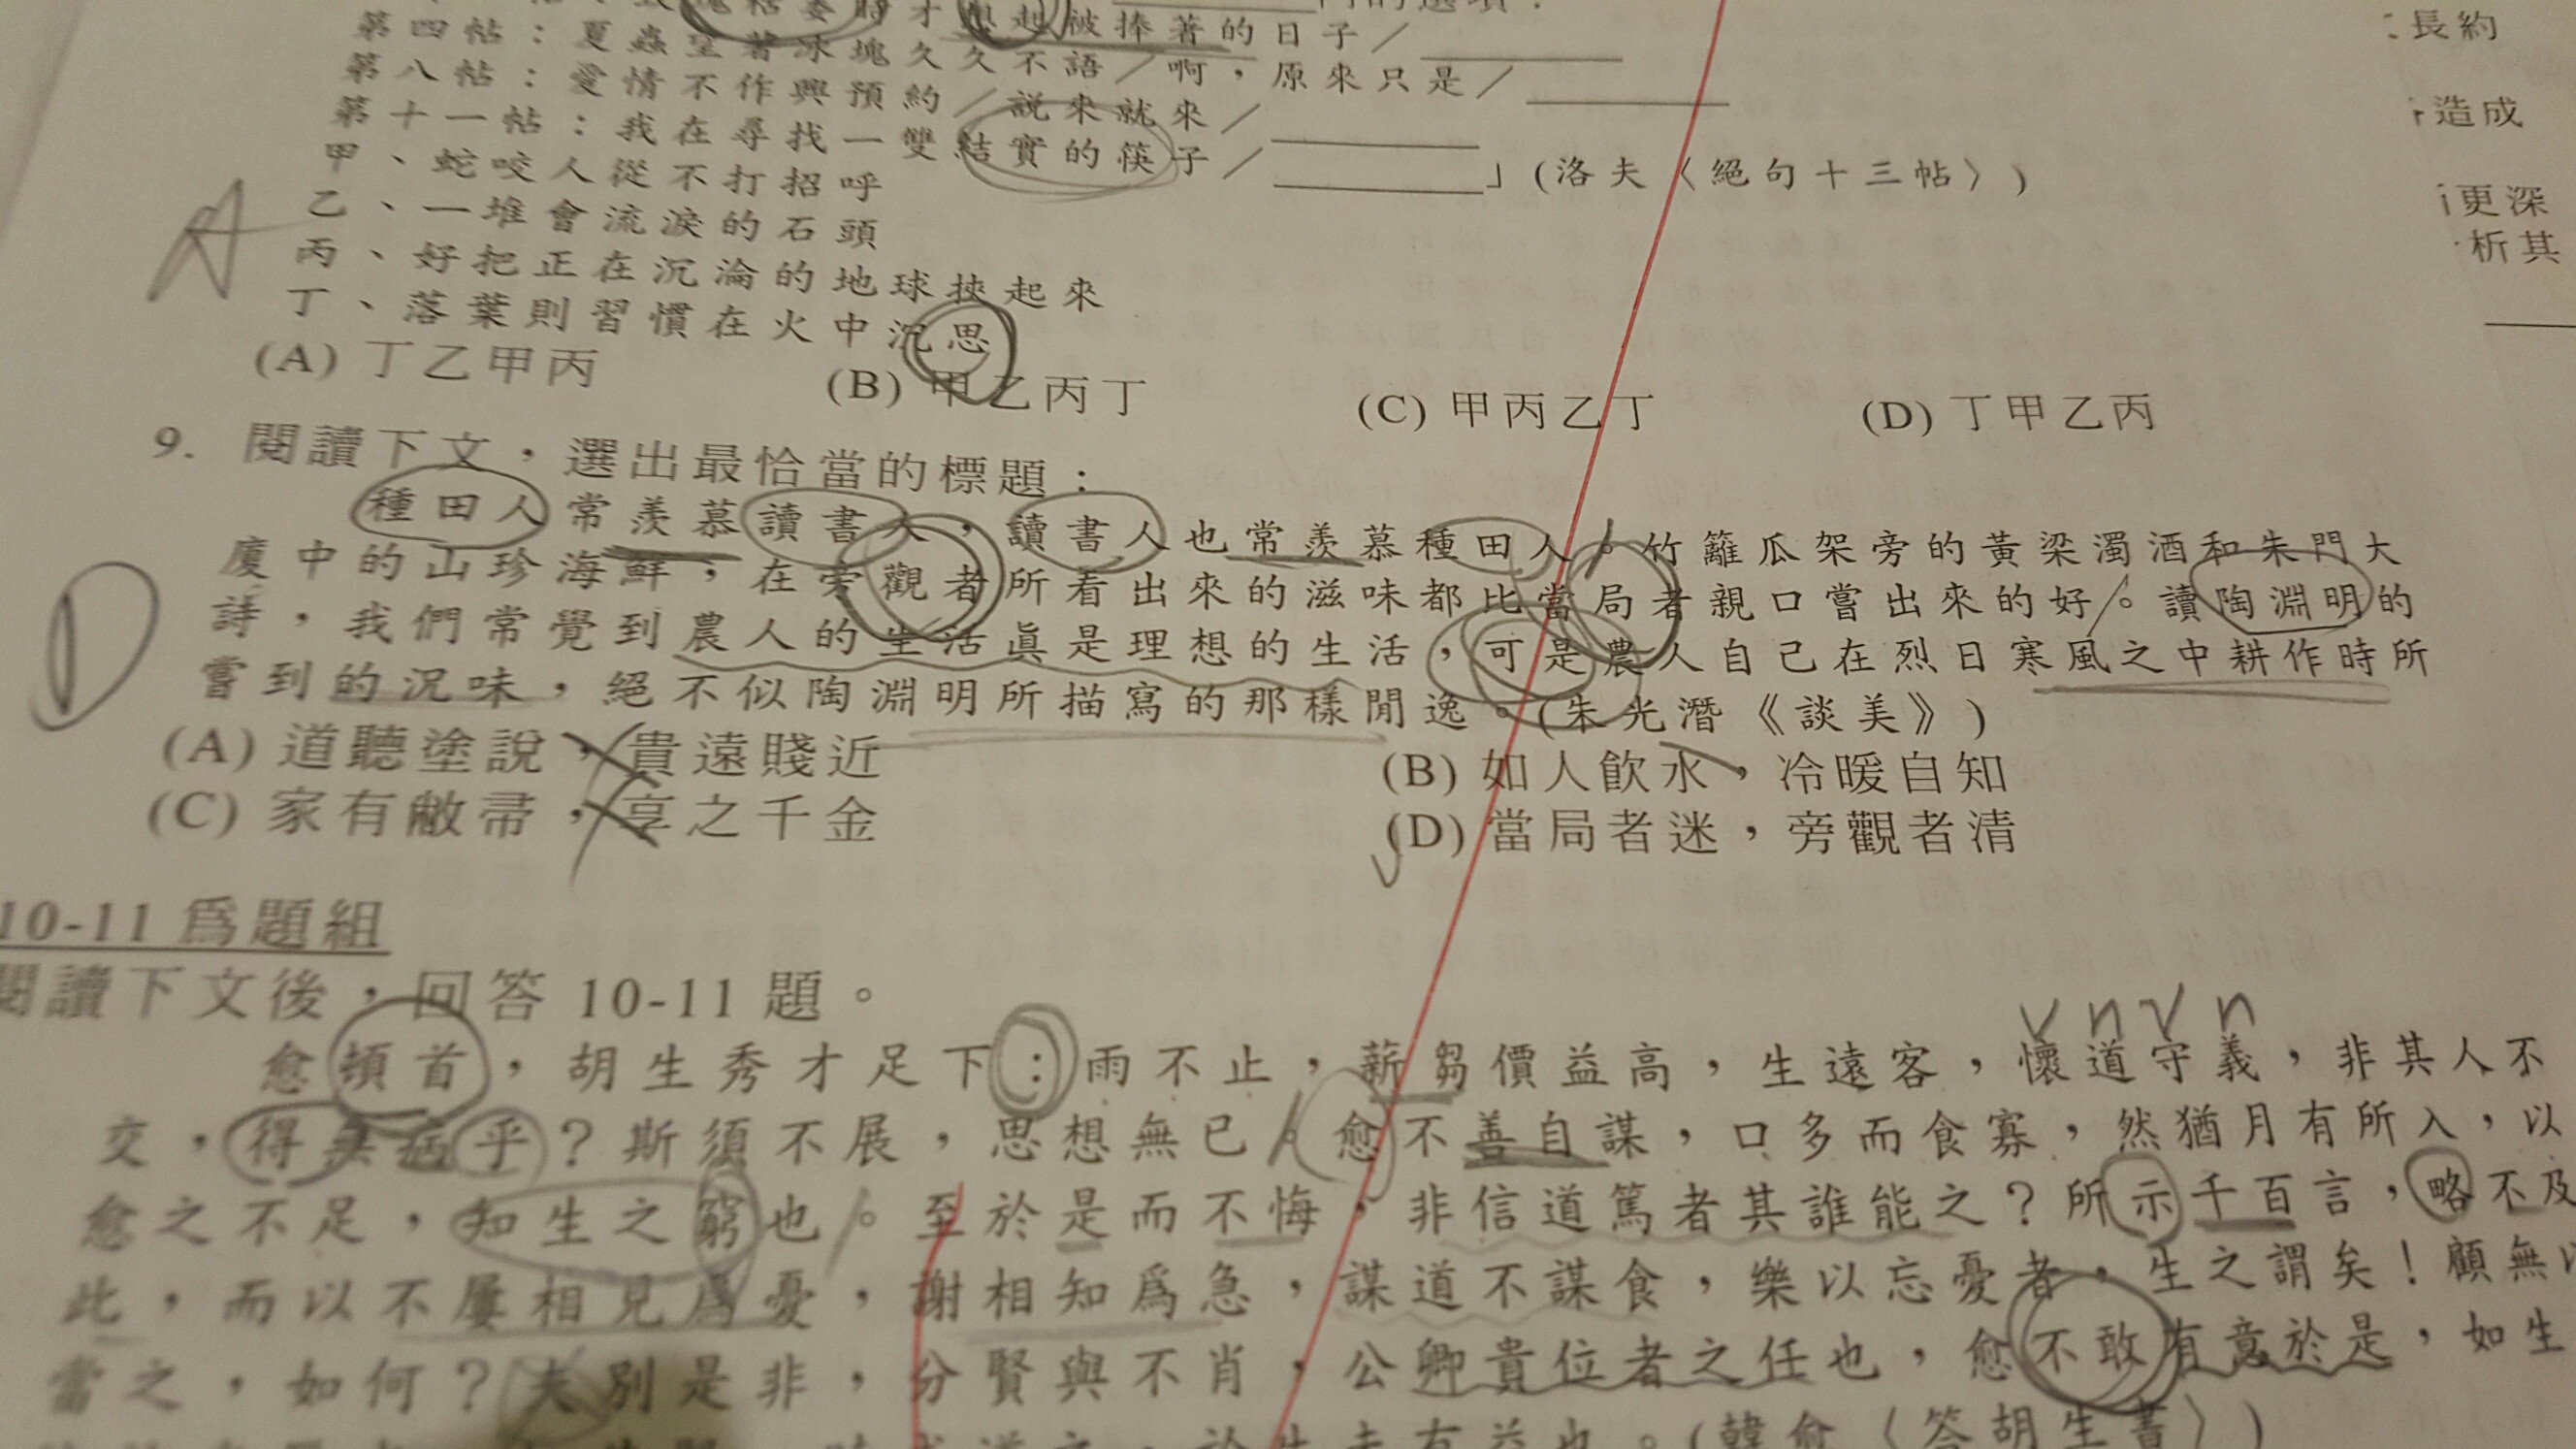 才想起被捧著的日子／
第四帖：夏蟲望著冰塊久久不語／啊，原來只是／
第八帖：愛情不作興預約／說來就來／
第十一帖：我在尋找一雙結實的筷子／」(洛夫〈絕句十三帖〉)
甲、蛇咬人從不打招呼
乙、一堆會流淚的石頭
丙、好把正在沉淪的地球挾起來
丁、落葉則習慣在火中沉思
A
(A) 丁乙甲丙 (B) 甲乙丙丁 (C) 甲丙乙丁 (D) 丁甲乙丙
9. 閱讀下文，選出最恰當的標題：
種田人常羨慕讀書人，讀書人也常羨慕種田人。竹籬瓜架旁的黃梁濁酒和朱門大
廈中的山珍海鮮，在旁觀者所看出來的滋味都比當局者親口嘗出來的好。讀陶淵明的
詩，我們常覺到農人的生活眞是理想的生活，可是農人自己在烈日寒風之中耕作時所
嘗到的況味，絕不似陶淵明所描寫的那樣閒逸。(朱光潛《談美》)
D
(A) 道聽塗說，貴遠賤近 (B) 如人飲水，冷暖自知
(C) 家有敝帚，享之千金 (D) 當局者迷，旁觀者清
10-11 爲題組
閱讀下文後，回答 10-11 題。
v n v n
愈頓首，胡生秀才足下：雨不止，薪芻價益高，生遠客，懷道守義，非其人不
交，得無病乎？斯須不展，思想無已。愈不善自謀，口多而食寡，然猶月有所入，以
愈之不足，知生之窮也。至於是而不悔，非信道篤者其誰能之？所示千百言，略不及
此，而以不屢相見爲憂，謝相知爲急，謀道不謀食，樂以忘憂者，生之謂矣！顧無以
當之，如何？夫別是非，分賢與不肖，公卿貴位者之任也，愈不敢有意於是，如生
(韓愈〈答胡生書〉)
長約
造成
更深
析其